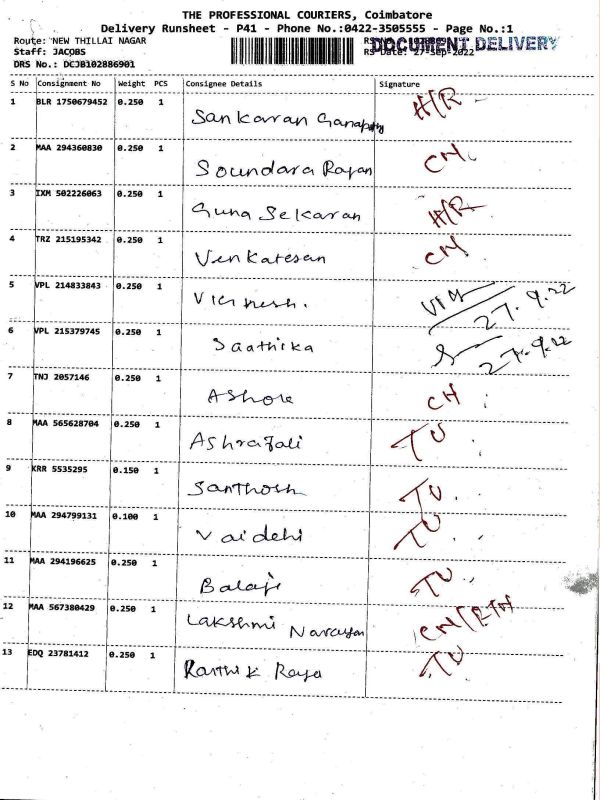 THE PROFESSIONAL COURIERS, Coimbatore
Delivery Runsheet - P41 - Phone No.:0422-3505555 - Page No.:1
Route: NEW THILLAI NAGAR
DOCUMENT DELIVERY
Staff: JACOBS RS Date: 27-Sep-2022
DRS No.: DCJB102886901
S No Consignment No Weight PCS Consignee Details Signature
1 BLR 1750679452 0.250 1 Sankaran Ganapathy H/R
2 MAA 294360830 0.250 1 Soundara Rajan CN
3 IXM 502226063 0.250 1 Guna Sekaran H/R
4 TRZ 215195342 0.250 1 Venkatesan CN
5 VPL 214833843 0.250 1 Vignesh. 27.9.22
6 VPL 215379745 0.250 1 Saathika 27.9.22
7 TNJ 2057146 0.250 1 Ashok CH
8 MAA 565628704 0.250 1 Ashrafali TU
9 KRR 5535295 0.150 1 Santhosh TU.
10 MAA 294799131 0.100 1 Vaidehi TU
11 MAA 294196625 0.250 1 Balaji TU
12 MAA 567380429 0.250 1 Lakshmi Narayan CN/RTN
13 EDQ 23781412 0.250 1 Karthik Raja TU